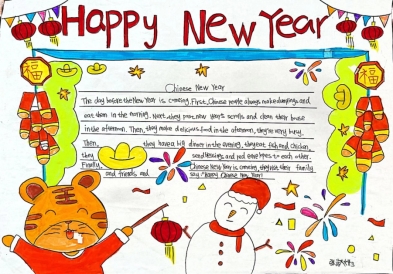 Happy New Year
福
福
Chinese New Year
The day before the New Year is coming. First, Chinese people always make dumplings and
eat them in the morning. Next, they post new year's scrolls and clean their house
in the afternoon. Then, they make delicious food in the afternoon, they're very busy.
Then, they have a big dinner in the evening, they eat fish and chicken,
they send blessing and red envelopes to each other.
Finally Chinese New Year is coming, they visit their family
and friends and say "Happy Chinese New Year!"